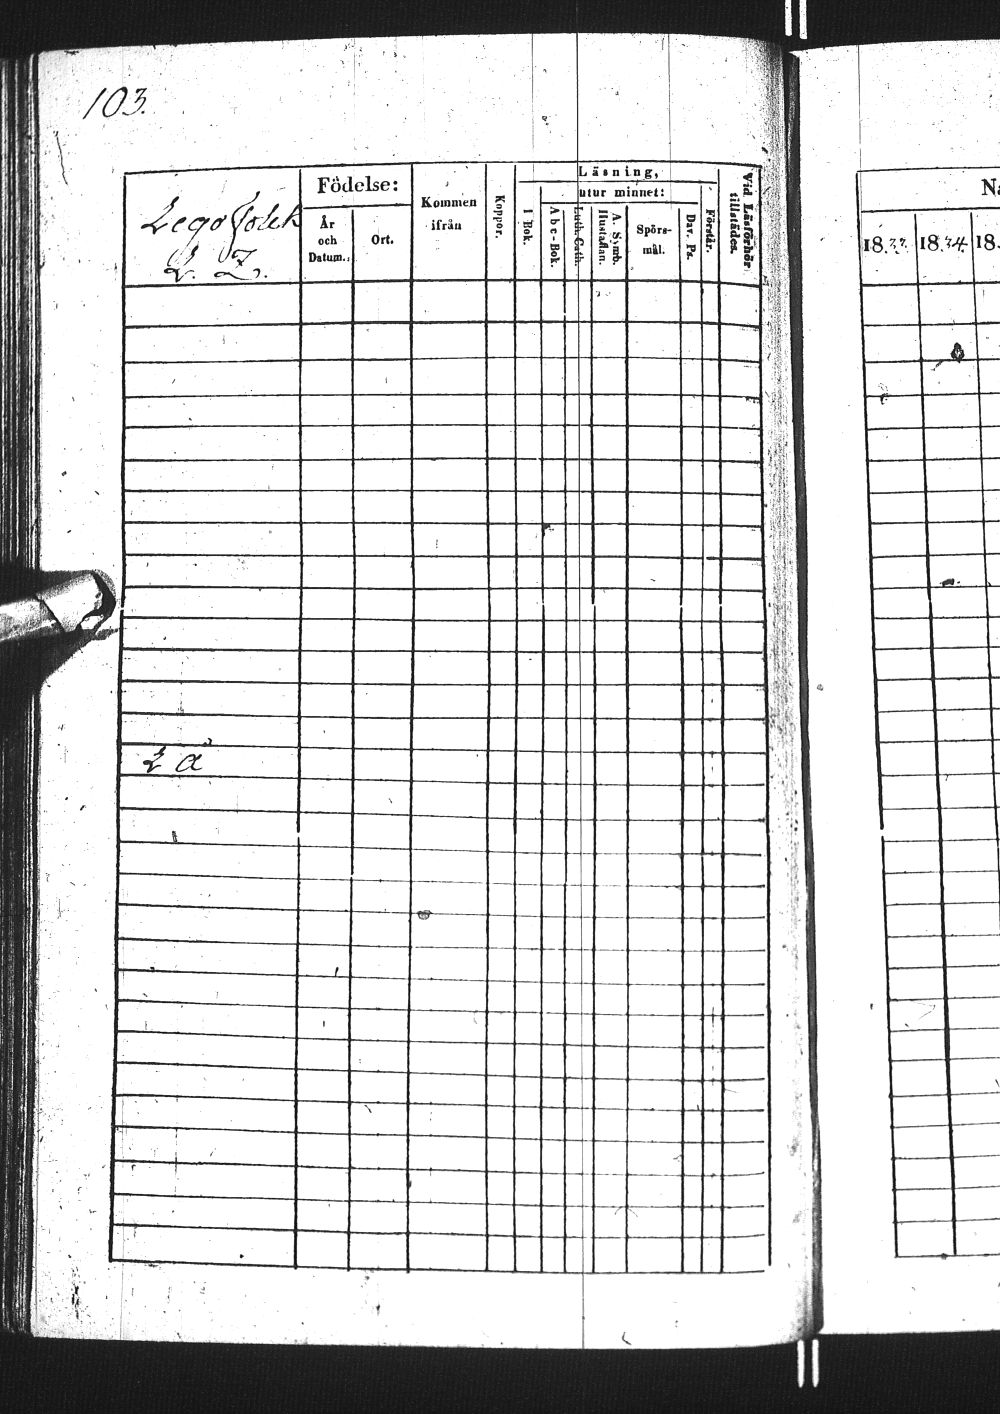 103.
Legofolck
L. Z.
Födelse:
År
och
Datum.
Ort.
Kommen
ifrån
Koppor.
Läsning,
I Bok.
utur minnet:
Abc-Bok.
Luth. Cath.
A. Symb.
Hustaflan.
Spörs-
mål.
Dav. Ps.
Förstår.
Vid Läsförhör
tillstädes.
L å
Na
1833.
1834.
18